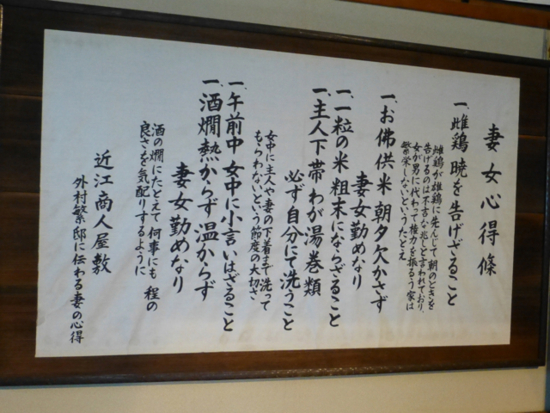 妻女心得條
一、雌鶏 暁を告げざること
雌鶏が雄鶏に先んじて朝のときを
告げるのは不吉な兆しと言われており、
女が男に代わって権力を振るう家は
繁栄しないというたとえ
一、お佛供米 朝夕欠かさず
妻女勤めなり
一、一粒の米粗末にならざること
一、主人下帯 わが湯巻類
必ず自分にて洗うこと
女中に主人や妻の下着まで洗って
もらわないという節度の大切さ
一、午前中 女中に小言いはざること
一、酒燗熱からず温からず
妻女勤めなり
酒の燗にたとえて 何事にも 程の
良さを気配りするように
近江商人屋敷
外村繁邸に伝わる妻の心得